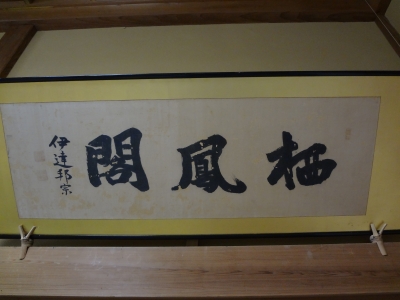 栖鳳閣
伊達邦宗